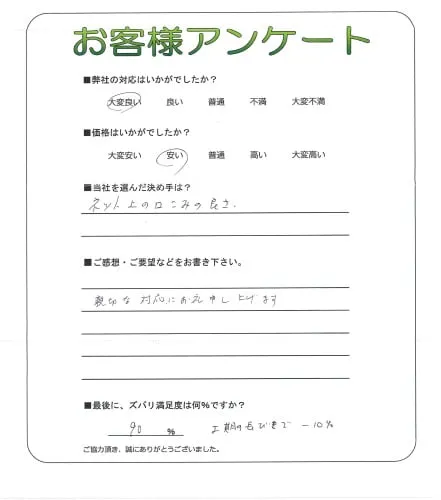 お客様アンケート
■弊社の対応はいかがでしたか？
大変良い 良い 普通 不満 大変不満
■価格はいかがでしたか？
大変安い 安い 普通 高い 大変高い
■当社を選んだ決め手は？
ネット上の口こみの良さ.
■ご感想・ご要望などをお書き下さい。
親切な対応にお礼申し上げます
■最後に、ズバリ満足度は何％ですか？
90 % 工期の長びきで －10%
ご協力頂き、誠にありがとうございました。